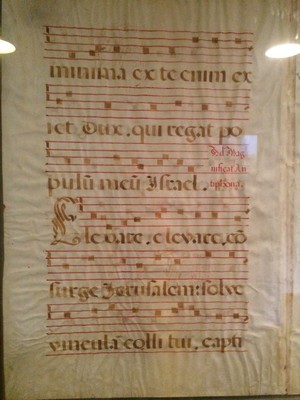 minima ex te enim ex
iet Dux, qui regat po
pulū meū Israel.
Ad Mag
nificat An
tiphona.
Elevare, elevare, cō
surge Jerusalem: solve
vincula colli tui, capti